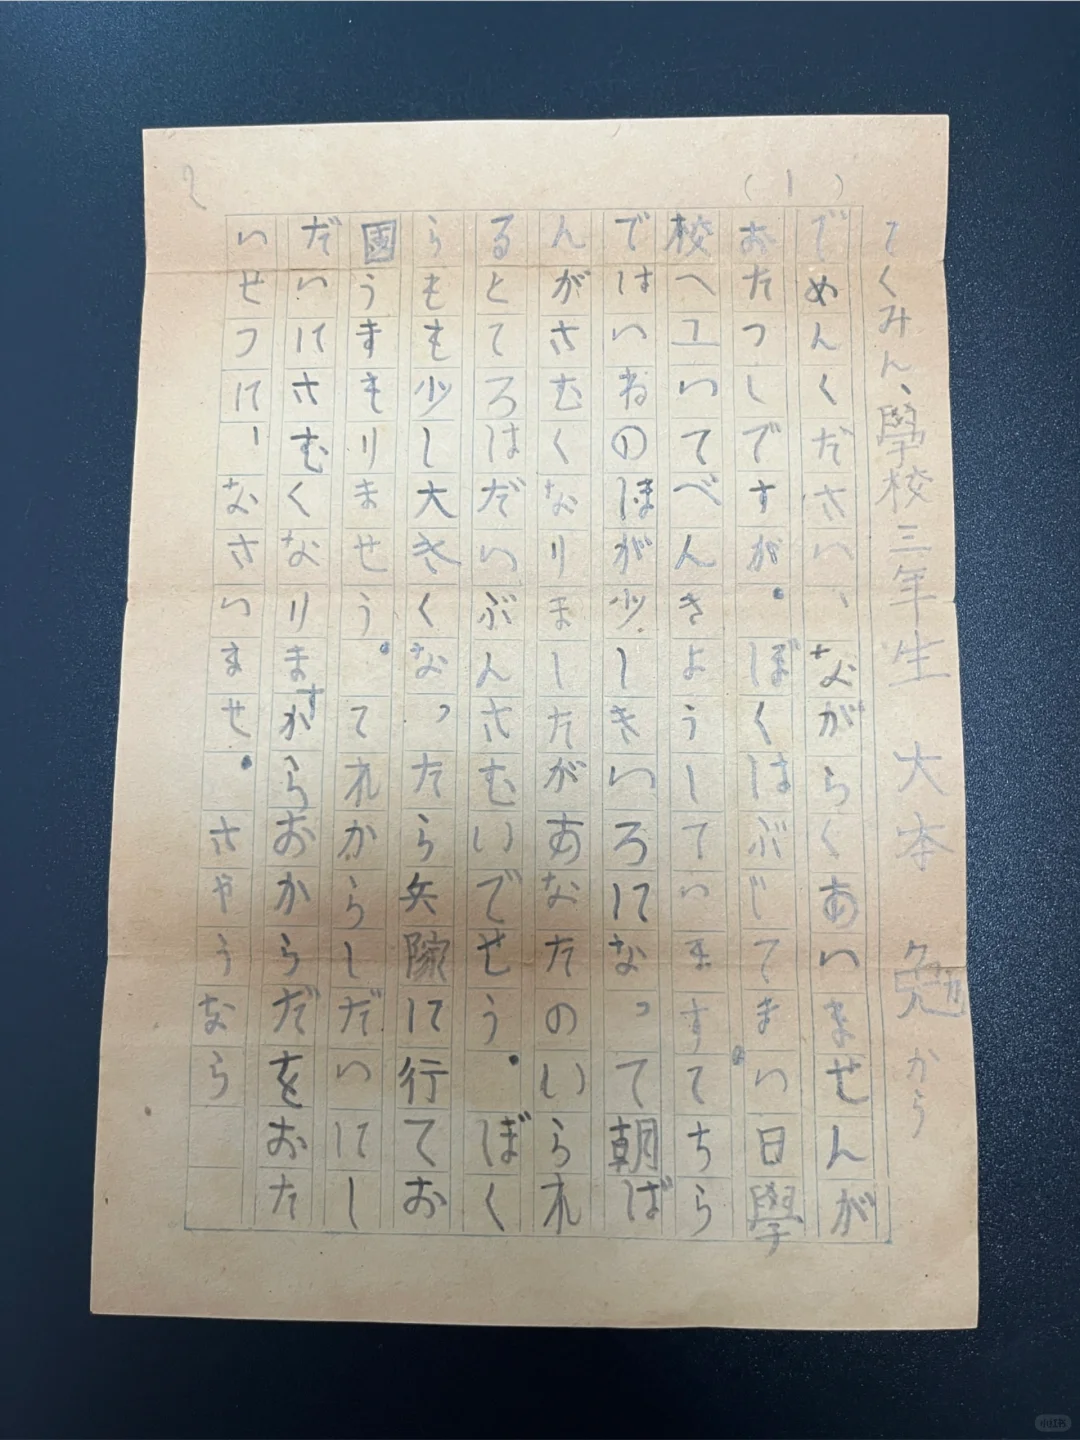 (1)
こくみん、學校三年生 大本 勉から
ごめんください、ながらくあいませんが
おたつしですが。ぼくはぶじでまい日學
校へ行いてべんきようしていますこちら
ではいねのほが少しきいろになって朝ば
んがさむくなりましたがあなたのいられ
るところはだいぶんさむいでせう。ぼく
らもも少し大きくなったら兵隊に行てお
國うまもりませう。これからしだいにし
だいにさむくなりますからおからだをおた
いせつに、なさいませ。さやうなら
2
小红书